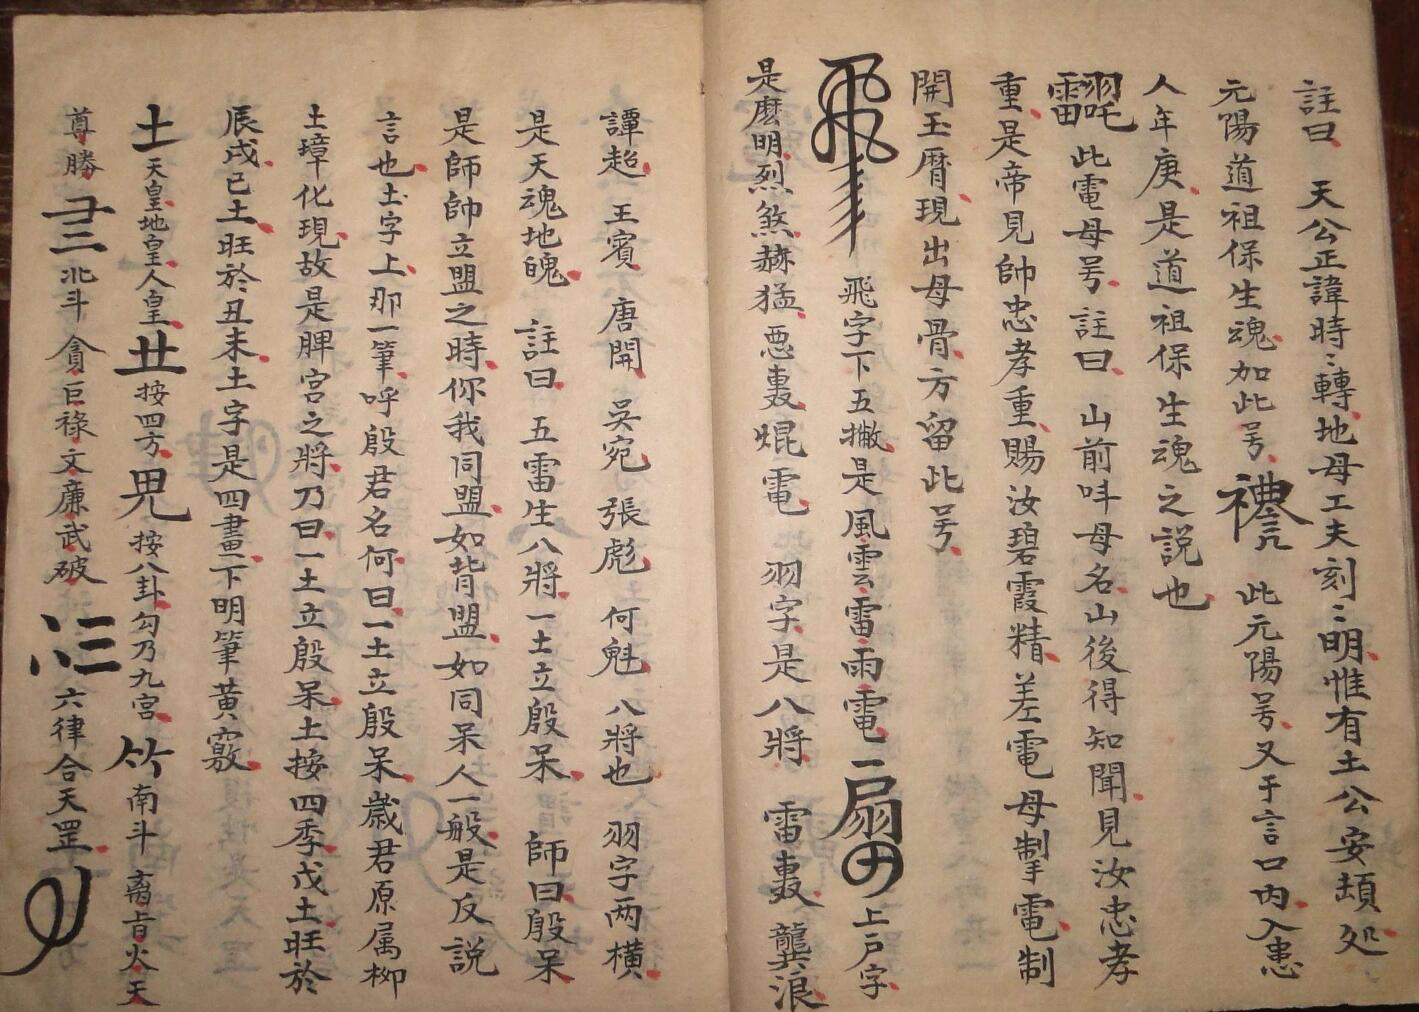 註曰 天公正諱時〻轉地母工夫刻〻明惟有土公安頓処
元陽道祖保生魂如此号 此元陽号又于言口内入患
人年庚是道祖保生魂之説也
此電母号註曰 山前呌母名山後得知聞見汝忠孝
重是帝見帥忠孝重賜汝碧霞精差電母掣電制
開玉曆現出母骨方留此号
飛字下五撇是風雲雷雨電 扇 上戸字
是麽明烈煞赫猛惡轟焜電 羽字是八將 雷轟龔浪
譚超 王賓 唐開 吳宛 張彪 何魁 八將也 羽字两横
是天魂地魄 註曰 五雷生八將一土立殷呆 師曰殷呆
是師帥立盟之時你我同盟如背盟如同呆人一般是反説
言也土字上那一筆呼殷君名何曰一土立殷呆歲君原属柳
土璋化現故是脾宫之將乃曰一土立殷呆土按四季戊土旺於
辰戌已土旺於丑未土字是四畫下明筆黄
土 天皇地皇人皇 按四方 按八卦勾乃九宫 竹 南斗 离㫖火天
尊勝 北斗 貪巨祿文廉武破 六律合天罡